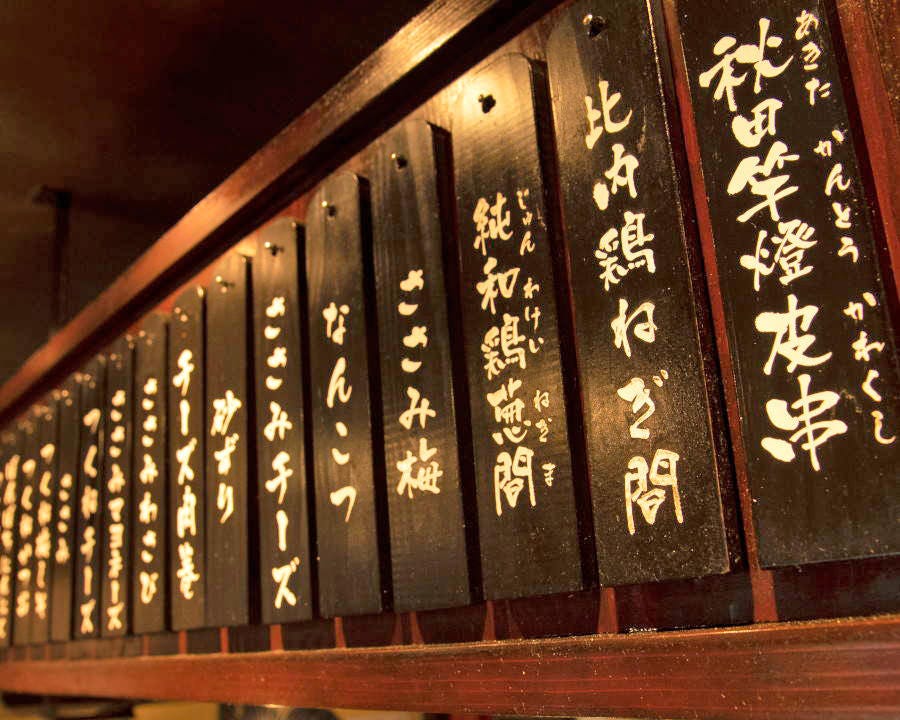 秋田竿燈皮串
あきた かんとう かわくし
比内鶏ねぎ間
純和鶏葱間
じゅん わけい ねぎ ま
ささみ梅
なんこつ
ささみチーズ
砂ずり
チーズ肉巻
ささみわさび
ささみマヨチーズ
つくねチーズ